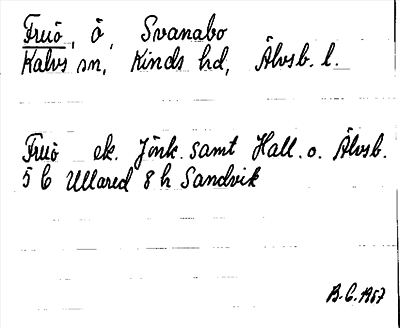 Fruö, ö, Svanabo
Kalvs sn, Kinds hd, Älvsb. l.
Fruö ek. Jönk. samt Hall. o. Älvsb.
5 C Ullared 8 h Sandvik
B.G. 1957